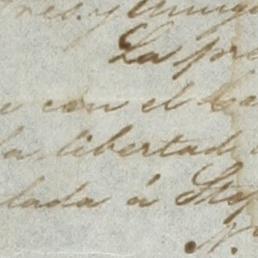 y Amig
La pre
e con el Ca
la libertad
lada á Step
N.